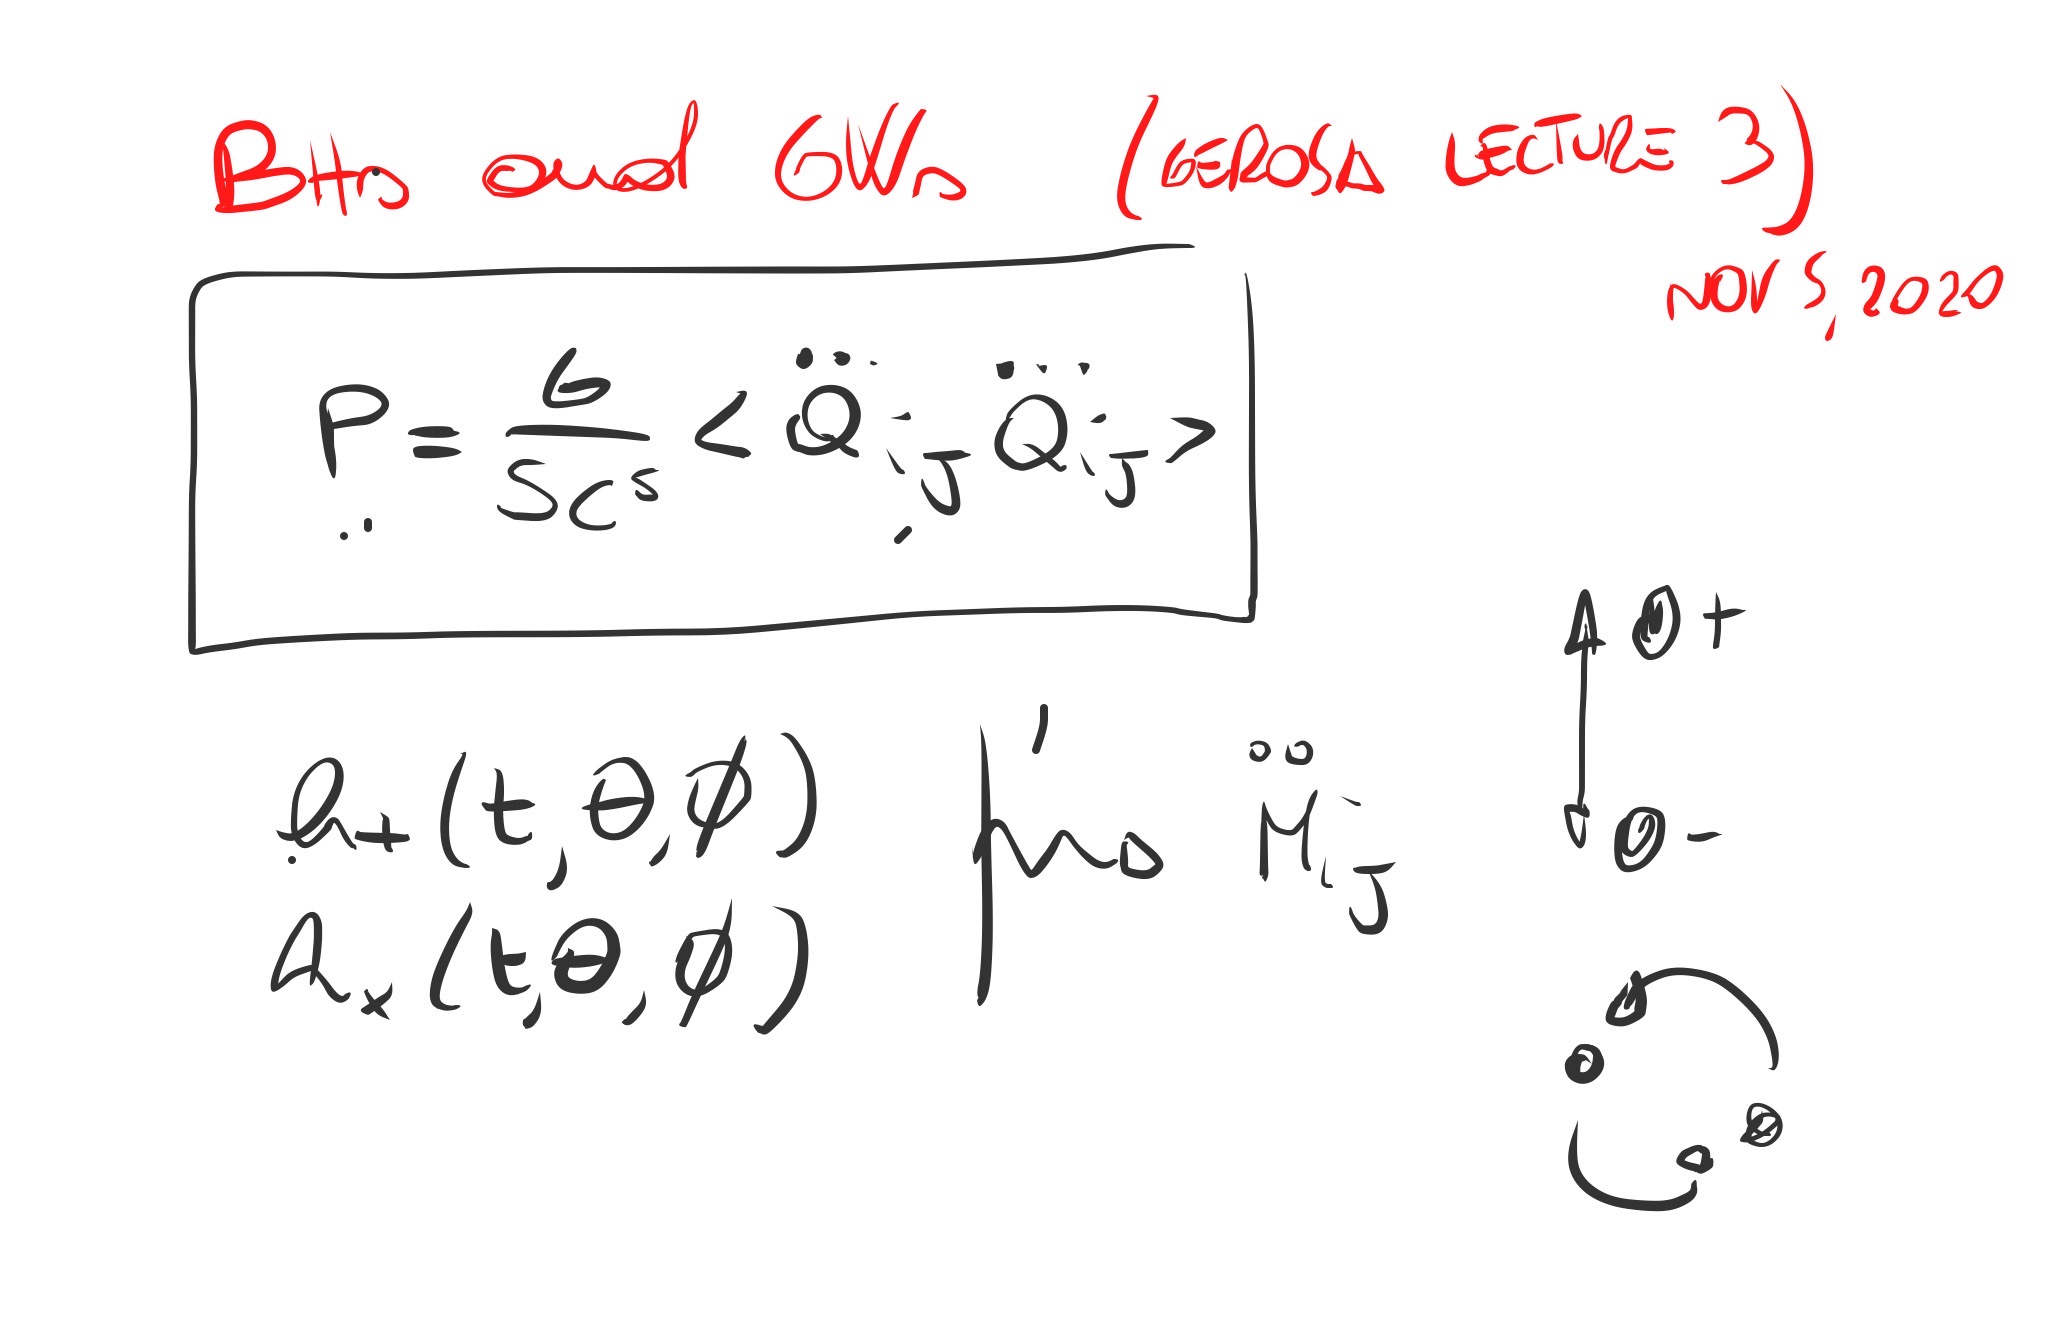 BHs and GWs (GEROSA LECTURE 3)
NOV 5, 2020
P = G / 5c⁵ < Q⃛ij Q⃛ij >
+
-
h+ (t, θ, φ)
M̈ij
h× (t, θ, φ)